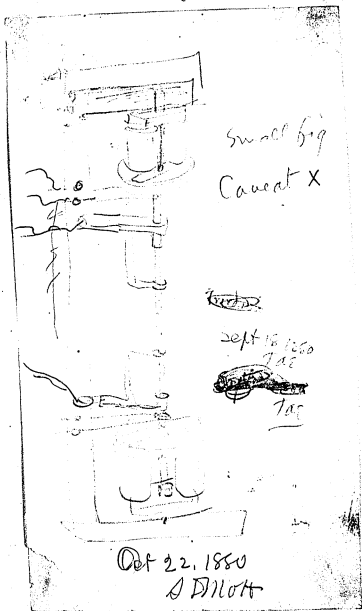 Small fig
Caveat X
Sept 18 1880
TAE
TAE
Oct 22, 1880
S D Mott